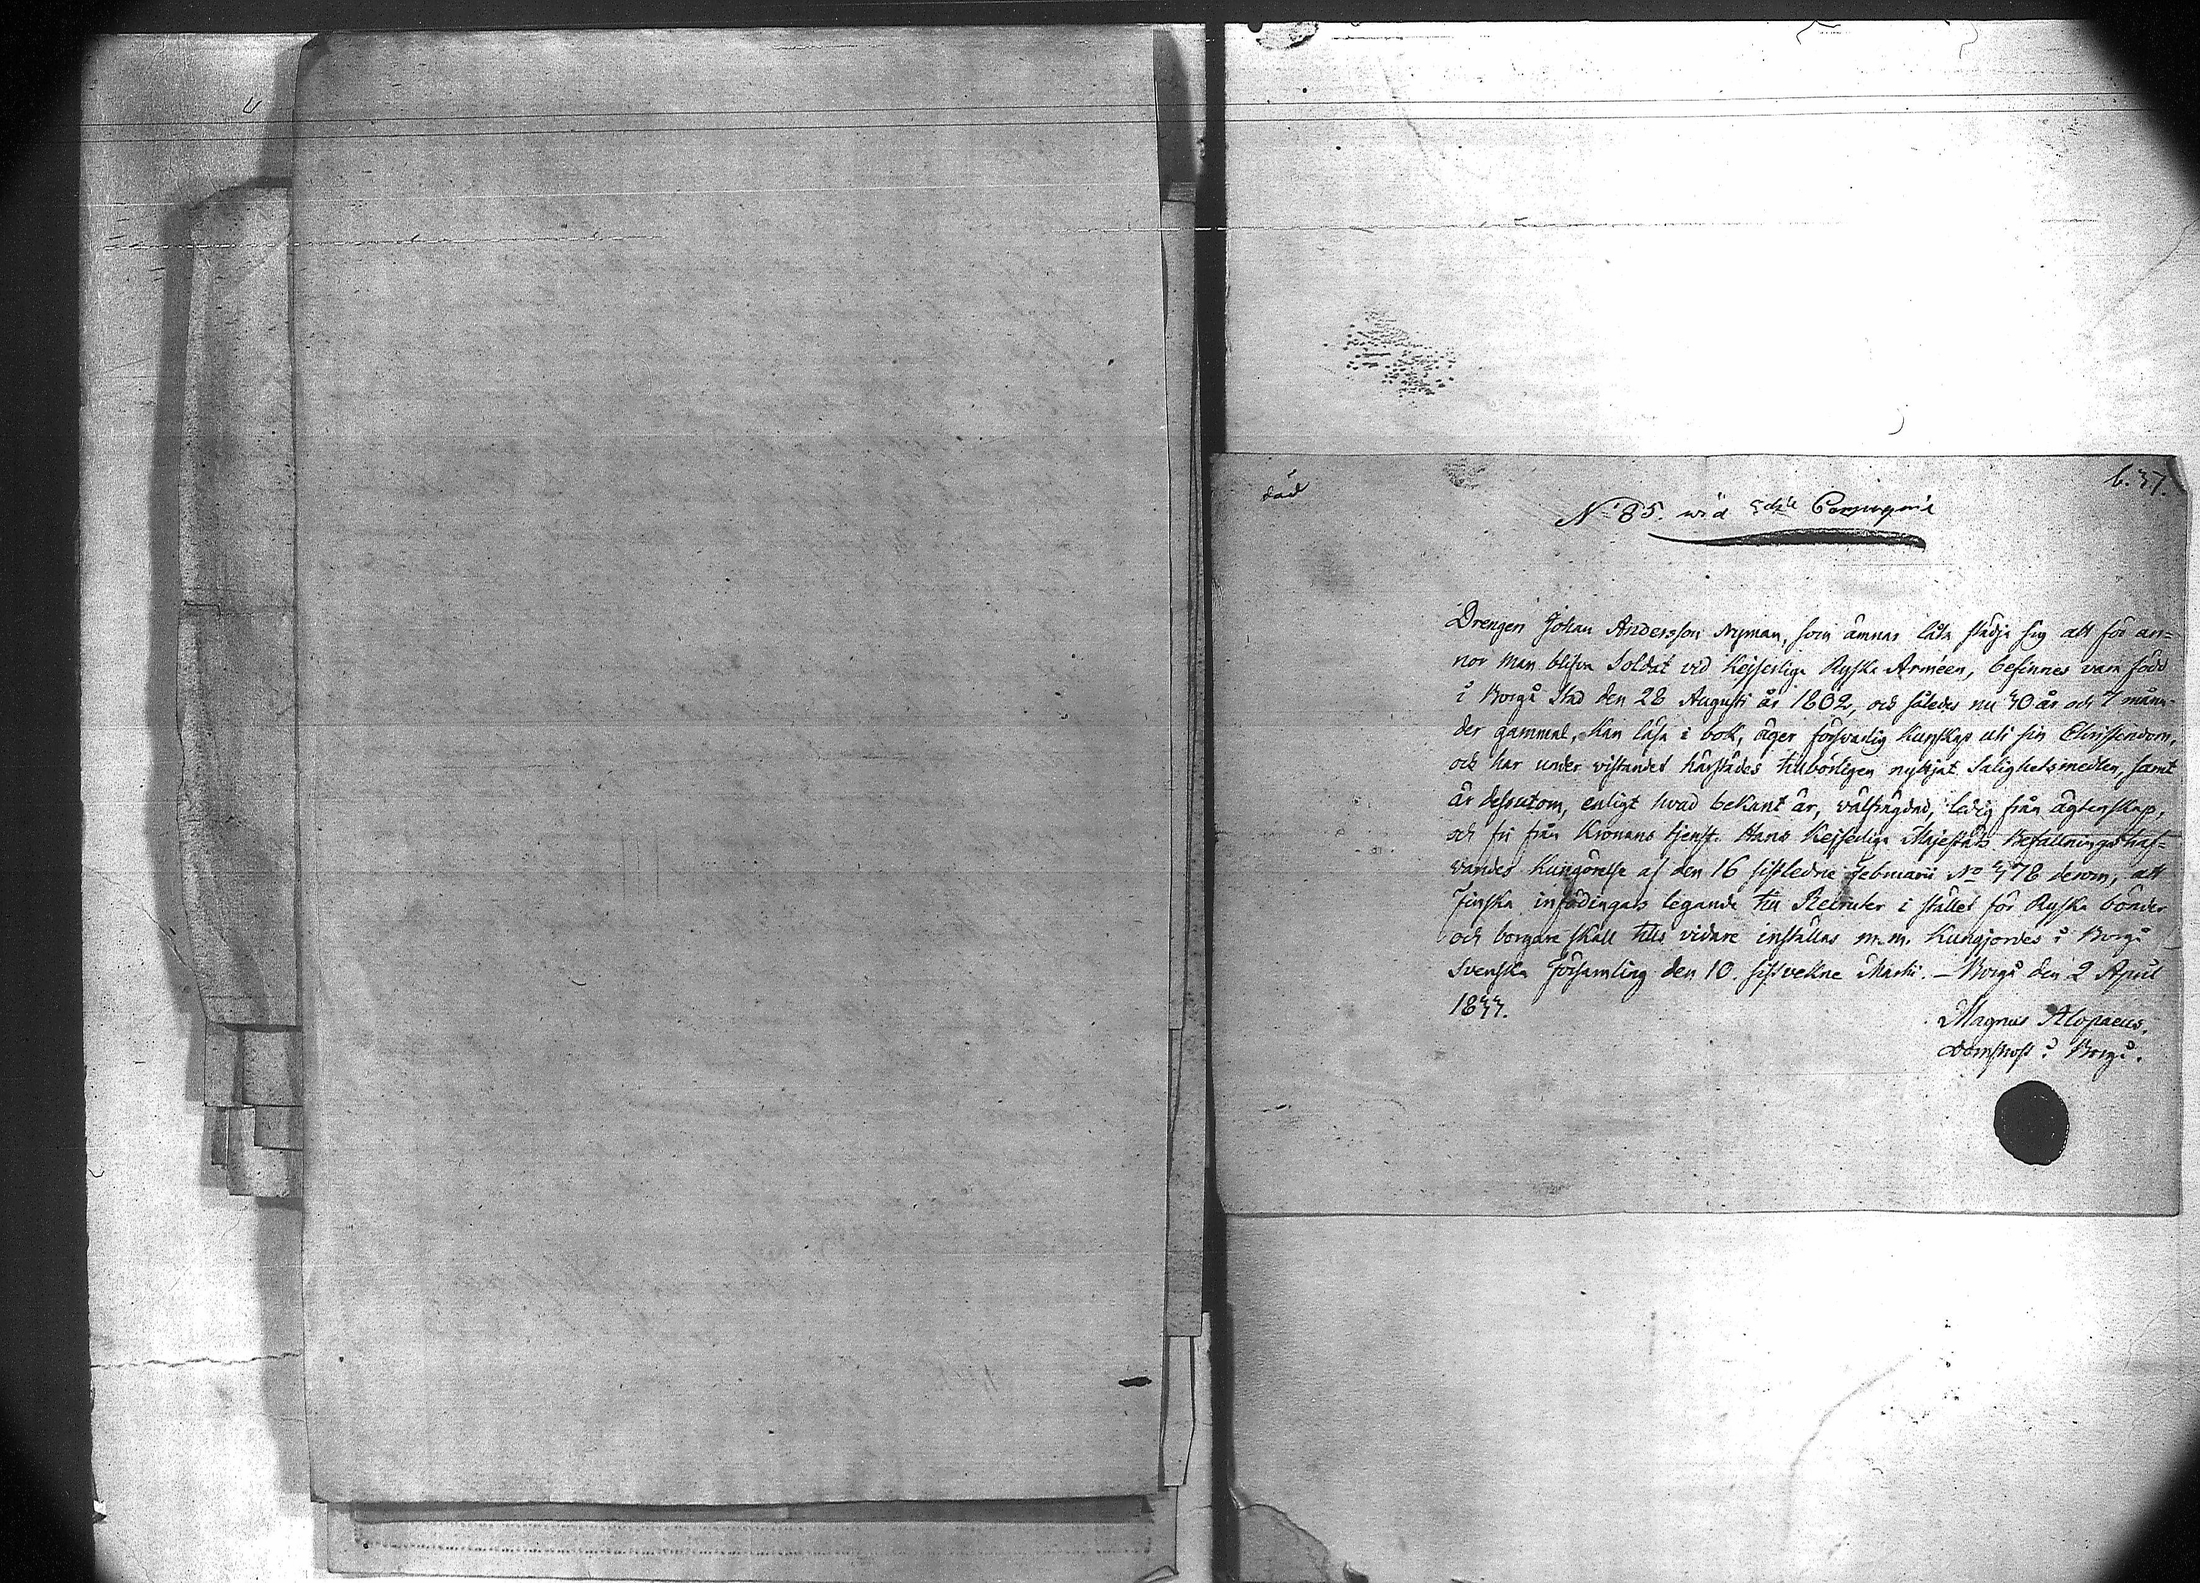 död
b. 37.
N:o 85. wid 3dje Compagnie
Drengen Johan Andersson Nyman, som ämnar låta städja sig att för an-
nor man blifva Soldat vid Kejserliga Ryska Arméen, befinnes vara född
i Borgå Stad den 28 Augusti år 1802, och således nu 30 år och 7 måna-
der gammal, kan läsa i bok, äger försvarlig kunskap uti sin Christendom,
och har under vistandet härstädes tillbörligen nyttjat Salighetsmedlen, samt
är dessutom, enligt hvad bekant är, välfrägdad, ledig från ägtenskap,
och fri från Kronans tjenst. Hans Kejserliga Majestäts Befallningshaf-
vandes Kungörelse af den 16 sistledne Februarii No 378 derom, att
Finska infödingars legande till Recruter i stället för Ryska bönder
och borgare skall tills vidare inställas m.m. kungjordes i Borgå
Svenska Församling den 10. sistvekne Martii. — Borgå den 2 April
1833.
Magnus Alopaeus.
Domprost i Borgå.